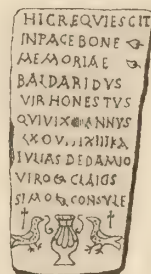 HICREQVIESCIT
INPACE BONE
MEMORIAE
BALDARIDVS
VIR HONESTVS
ANNVS
IVLIAS DEDAMIO
VIRO CLAIOS
SIMO CONSVLE